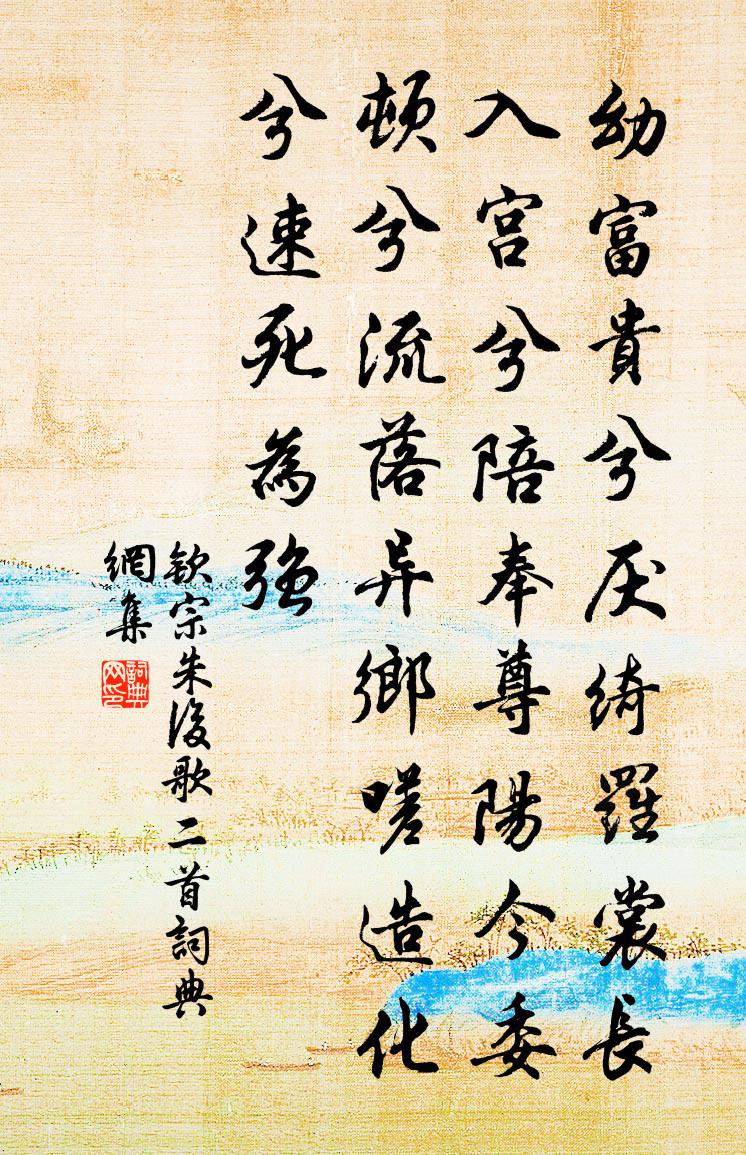 幼富貴兮厌绮羅裳長
入宫兮陪奉尊陽今委
頓兮流落异鄉嗟造化
兮速死為強
钦宗朱後歌二首詞典
網集
詞典
网印